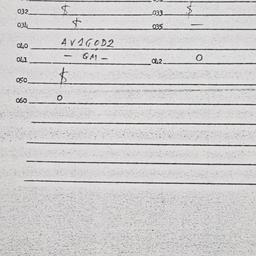 032 $ 033 $
034 $ 035 —
040 AV1GOD2
041 - GM - 042 0
050 $
060 0